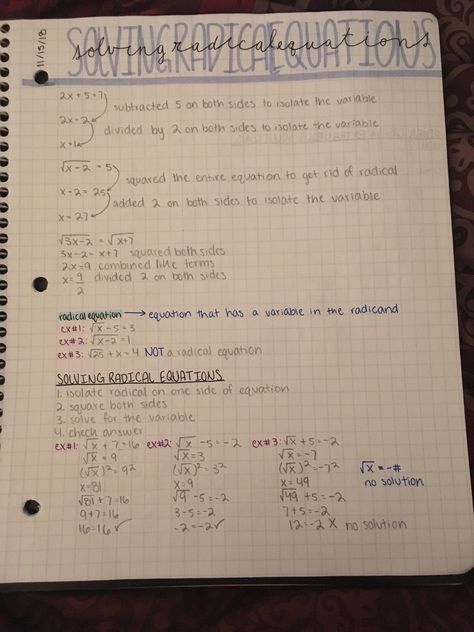 11/15/18
SOLVING RADICAL EQUATIONS
solving radical equations
2x+5=7
subtracted 5 on both sides to isolate the variable
2x=2
divided by 2 on both sides to isolate the variable
x=1
√x-2 = 5
squared the entire equation to get rid of radical
x-2 = 25
added 2 on both sides to isolate the variable
x = 27
√3x-2 = √x+7
3x-2 = x+7 squared both sides
2x=9 combined like terms
x=9/2 divided 2 on both sides
radical equation → equation that has a variable in the radicand
ex#1: √x -5 = 3
ex#2: √x-2 = 1
ex#3: √25 + x = 4 NOT a radical equation
SOLVING RADICAL EQUATIONS
1. isolate radical on one side of equation
2. square both sides
3. solve for the variable
4. check answer
ex#1: √x + 7 = 16 ex#2: √x -5 = -2 ex#3: √x + 5 = -2
√x = 9 √x = 3 √x = -7 √x = -#
(√x)² = 9² (√x)² = 3² (√x)² = -7² no solution
x=81 x=9 x=49
√81 + 7 = 16 √9 -5 = -2 √49 +5 = -2
9+7=16 3-5=-2 7+5=-2
16=16 ✓ -2=-2 ✓ 12=-2 X no solution